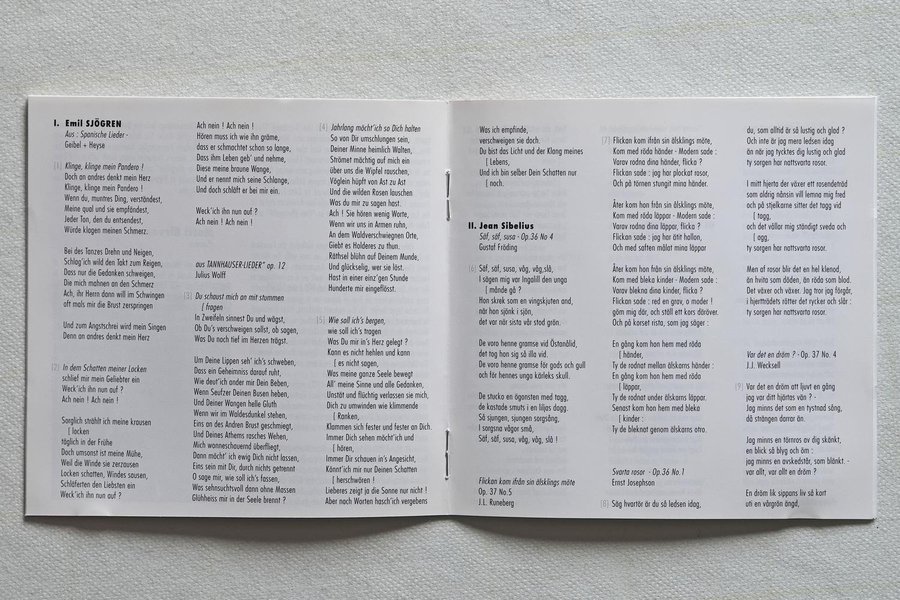 I. Emil SJÖGREN
Aus : Spanische Lieder -
Geibel + Heyse
[1] Klinge, klinge mein Pandero !
Doch an andres denkt mein Herz
Klinge, klinge mein Pandero !
Wenn du, muntres Ding, verständest,
Meine qual und sie empfändest,
Jeder Ton, den du entsendest,
Würde klagen meinen Schmerz.
Bei des Tanzes Drehn und Neigen,
Schlag'ich wild den Takt zum Reigen,
Dass nur die Gedanken schweigen,
Die mich mahnen an den Schmerz
Ach, ihr Herrn dann will im Schwingen
oft mals mir die Brust zerspringen
Und zum Angstschrei wird mein Singen
Denn an andres denkt mein Herz
[2] In dem Schatten meiner Locken
schlief mir mein Geliebter ein
Weck'ich ihn nun auf ?
Ach nein ! Ach nein !
Sorglich strählt ich meine krausen
[ locken
täglich in der Frühe
Doch umsonst ist meine Mühe,
Weil die Winde sie zerzausen
Locken schatten, Windes sausen,
Schläferten den Liebsten ein
Weck'ich ihn nun auf ?
Ach nein ! Ach nein !
Hören muss ich wie ihn gräme,
dass er schmachtet schon so lange,
Dass ihm Leben geb' und nehme,
Diese meine braune Wange,
Und er nennt mich seine Schlange,
Und doch schläft er bei mir ein.
Weck'ich ihn nun auf ?
Ach nein ! Ach nein !
aus TANNHAUSER-LIEDER" op. 12
Julius Wolff
[3] Du schaust mich an mit stummen
[ fragen
In Zweifeln sinnest Du und wägst,
Ob Du's verschweigen sollst, ob sagen,
Was Du noch tief im Herzen trägst.
Um Deine Lippen seh' ich's schweben,
Dass ein Geheimniss darauf ruht,
Wie deut'ich ander mir Dein Beben,
Wenn Seufzer Deinen Busen heben,
Und Deiner Wangen helle Gluth
Wenn wir im Waldesdunkel stehen,
Eins an des Andren Brust geschmiegt,
Und Deines Athems rasches Wehen,
Mich wonneschauernd überfliegt,
Dann möcht' ich ewig Dich nicht lassen,
Eins sein mit Dir, durch nichts getrennt
O sage mir, wie soll ich's fassen,
Was sehnsuchtsvoll dann ohne Massen
Glühheiss mir in der Seele brennt ?
[4] Jahrlang möcht'ich so Dich halten
So von Dir umschlungen sein,
Deiner Minne heimlich Walten,
Strömet mächtig auf mich ein
über uns die Wipfel rauschen,
Vöglein hüpft von Ast zu Ast
Und die wilden Rosen lauschen
Was du mir zu sagen hast.
Ach ! Sie hören wenig Worte,
Wenn wir uns in Armen ruhn,
An dem Waldverschwiegnen Orte,
Giebt es Holderes zu thun.
Räthsel blühn auf Deinem Munde,
Und glückselig, wer sie löst.
Hast in einer einz'gen Stunde
Hunderte mir eingeflösst.
[5] Wie soll ich's bergen,
wie soll ich's tragen
Was Du mir in's Herz gelegt ?
Kann es nicht hehlen und kann
[ es nicht sagen,
Was meine ganze Seele bewegt
All' meine Sinne und alle Gedanken,
Unstät und flüchtig verlassen sie mich,
Dich zu umwinden wie klimmende
[ Ranken,
Klammen sich fester und fester an Dich.
Immer Dich sehen möcht'ich und
[ hören,
Immer Dir schauen in's Angesicht,
Könnt'ich mir nur Deinen Schatten
[ herschwören !
Lieberes zeigt ja die Sonne nur nicht !
Aber nach Worten hasch'ich vergebens
Was ich empfinde,
verschweigen sie doch.
Du bist das Licht und der Klang meines
[ Lebens,
Und ich bin selber Dein Schatten nur
[ noch.
II. Jean Sibelius
Säf, säf, susa - Op.36 No 4
Gustaf Fröding
[6] Säf, säf, susa, våg, våg,slå,
i sägen mig var Ingalill den unga
[ månde gå ?
Hon skrek som en vingskjuten and,
när hon sjönk i sjön,
det var när sista vår stod grön.
De voro henne gramse vid Östanålid,
det tog hon sig så illa vid.
De voro henne gramse för gods och gull
och för hennes unga kärleks skull.
De stucko en ögonsten med tagg,
de kastade smuts i en liljas dagg.
Så sjungen, sjungen sorgsång,
I sorgsna vågor små,
Säf, säf, susa, våg, våg, slå !
Flickan kom ifrån sin älsklings möte
Op. 37 No.5
J.L. Runeberg
[7] Flickan kom ifrån sin älsklings möte,
Kom med röda händer - Modern sade :
Varav rodna dina händer, flicka ?
Flickan sade : jag har plockat rosor,
Och på törnen stungit mina händer.
Åter kom hon från sin älsklings möte,
Kom med röda läppar - Modern sade :
Varav rodna dina läppar, flicka ?
Flickan sade : jag har ätit hallon,
Och med saften målat mina läppar
Åter kom hon från sin älsklings möte,
Kom med bleka kinder - Modern sade :
Varav blekna dina kinder, flicka ?
Flickan sade : red en grav, o moder !
göm mig där, och ställ ett kors däröver.
Och på korset rista, som jag säger :
En gång kom hon hem med röda
[ händer,
Ty de rodnat mellan älskarns händer.
En gång kom hon hem med röda
[ läppar,
Ty de rodnat under älskarns läppar.
Senast kom hon hem med bleka
[ kinder :
Ty de bleknat genom älskarns otro.
Svarta rosor - Op.36 No.1
Ernst Josephson
[8] Säg hvartör är du så ledsen idag,
du, som alltid är så lustig och glad ?
Och inte är jag mera ledsen idag
än när jag tycktes dig lustig och glad
ty sorgen har nattsvarta rosor.
I mitt hjerta der växer ett rosendeträd
som aldrig nånsin vill lemna mig fred
och på stjelkarne sitter det tagg vid
[ tagg,
och det vållar mig ständigt sveda och
[ agg,
ty sorgen har nattsvarta rosor.
Men af rosor blir det en hel klenod,
än hvita som döden, än röda som blod.
Det växer och växer. Jag tror jag förgår,
i hjertträdets rötter det rycker och slår :
ty sorgen har nattsvarta rosor.
Var det en dröm ? - Op. 37 No. 4
J.J. Wecksell
[9] Var det en dröm att ljuvt en gång
jag var ditt hjärtas vän ? -
Jag minns det som en tystnad sång,
då strängen darrar än.
Jag minns en törnros av dig skänkt,
en blick så blyg och öm :
jag minns en avskedstår, som blänkt -
var allt, var allt en dröm ?
En dröm lik sippans liv så kort
uti en vårgrön ängd,